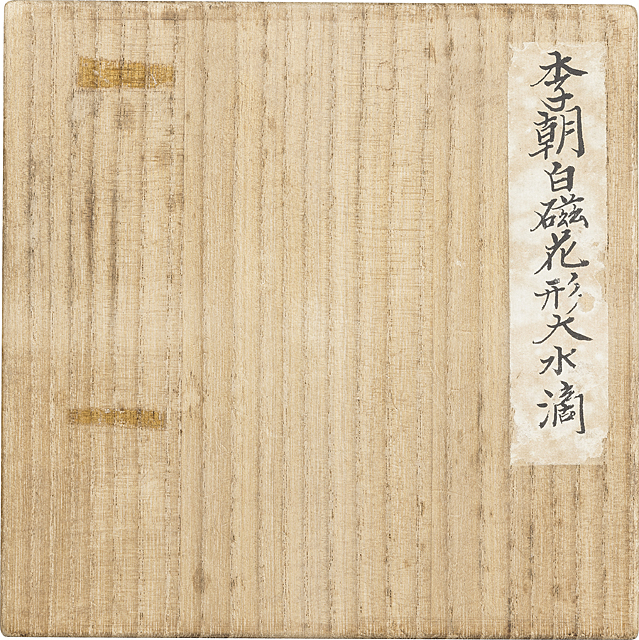 李朝白磁花形大水滴